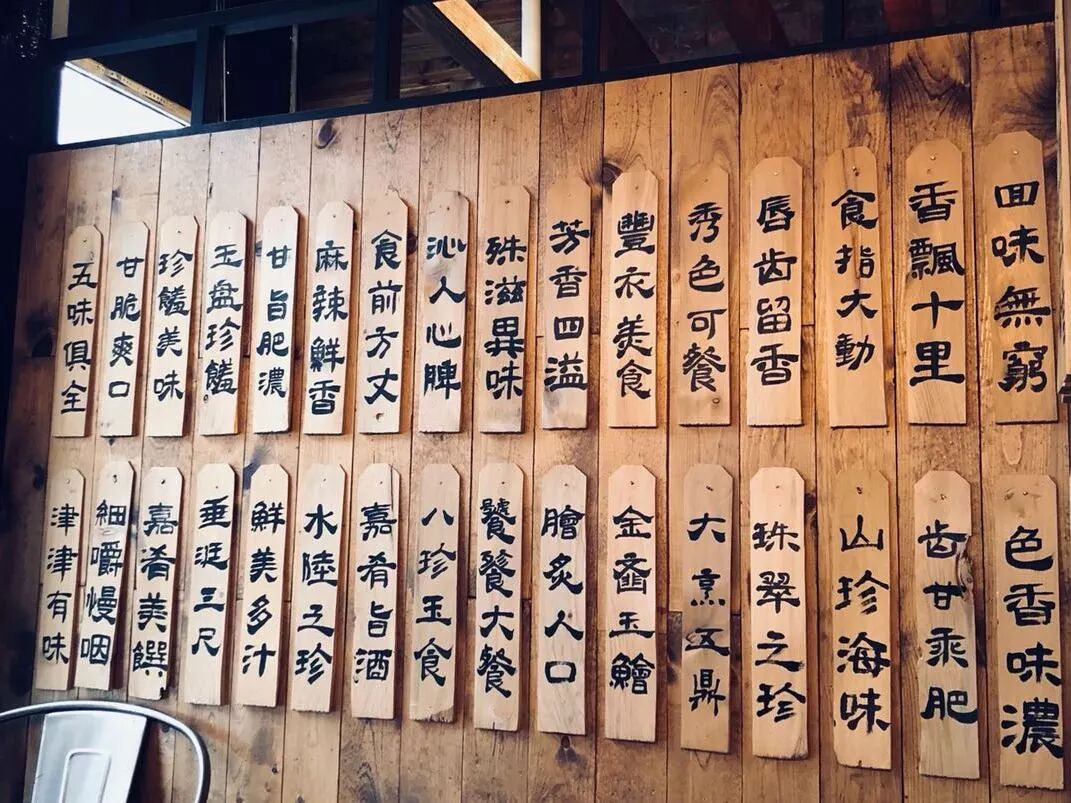 回味無窮
香飄十里
食指大動
唇齿留香
秀色可餐
豐衣美食
芳香四溢
殊滋異味
沁人心脾
食前方丈
麻辣鮮香
甘旨肥濃
玉盘珍饈
珍饈美味
甘脆爽口
五味俱全
色香味濃
齿甘乘肥
山珍海味
珠翠之珍
大烹五鼎
金齏玉鱠
膾炙人口
饕餮大餐
八珍玉食
嘉肴旨酒
水陸之珍
鮮美多汁
垂涎三尺
嘉肴美饌
細嚼慢咽
津津有味